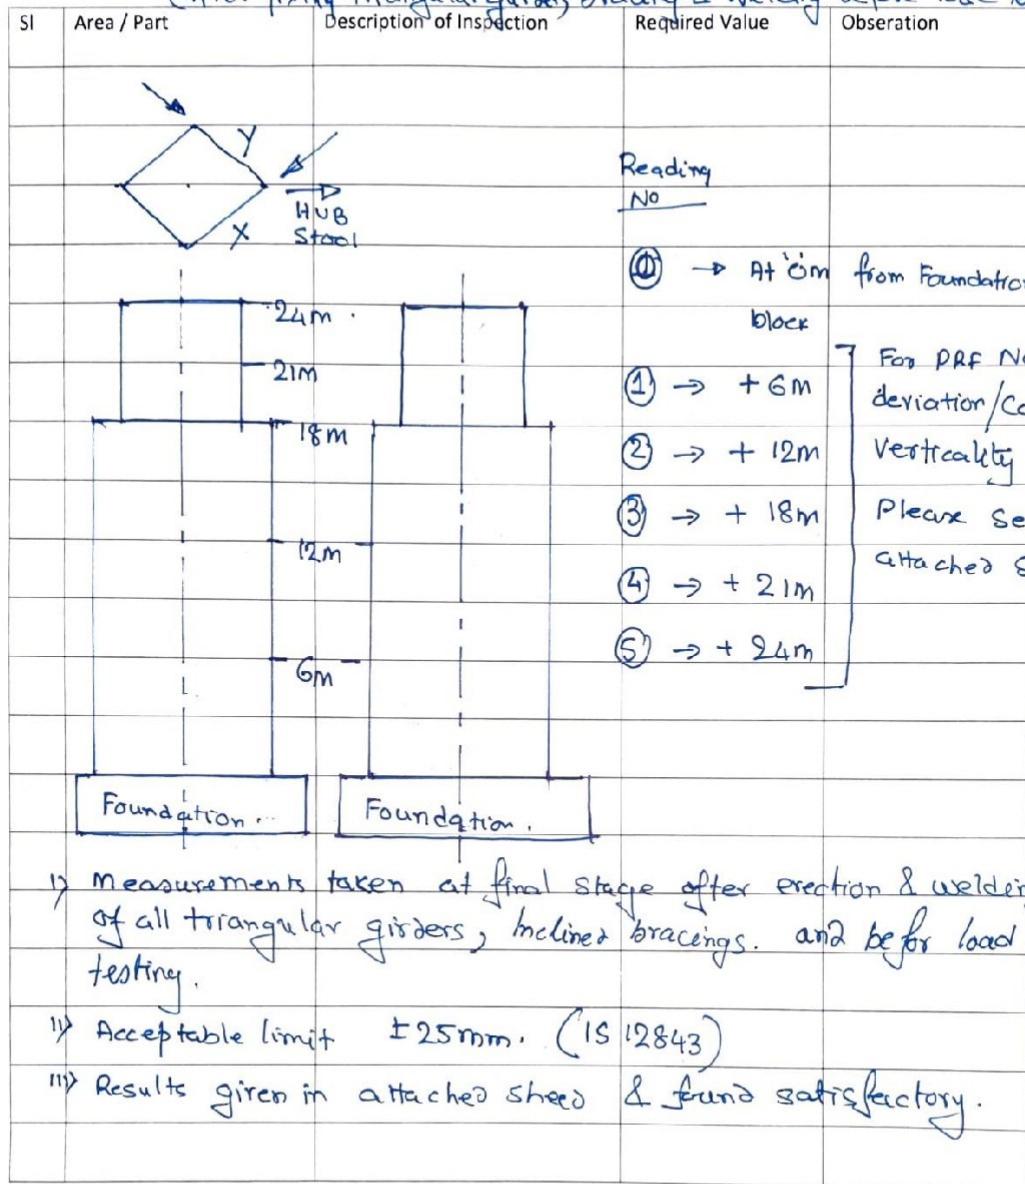 Sl Area / Part Description of Inspection Required Value Obseration
Y
X
HUB
Stool
Reading
No
① → At 0m from Foundation
block
24m
21m
18m
12m
6m
① → + 6m
② → + 12m
③ → + 18m
④ → + 21m
⑤ → + 24m
For PRF No
deviation/Co
Verticality
Please se
attached S
Foundation
Foundation.
i) Measurements taken at final stage after erection & welding
of all triangular girders, Inclined bracings. and befor load
testing.
ii) Acceptable limit ±25mm. (IS 12843)
iii) Results given in attached sheed & found satisfactory.